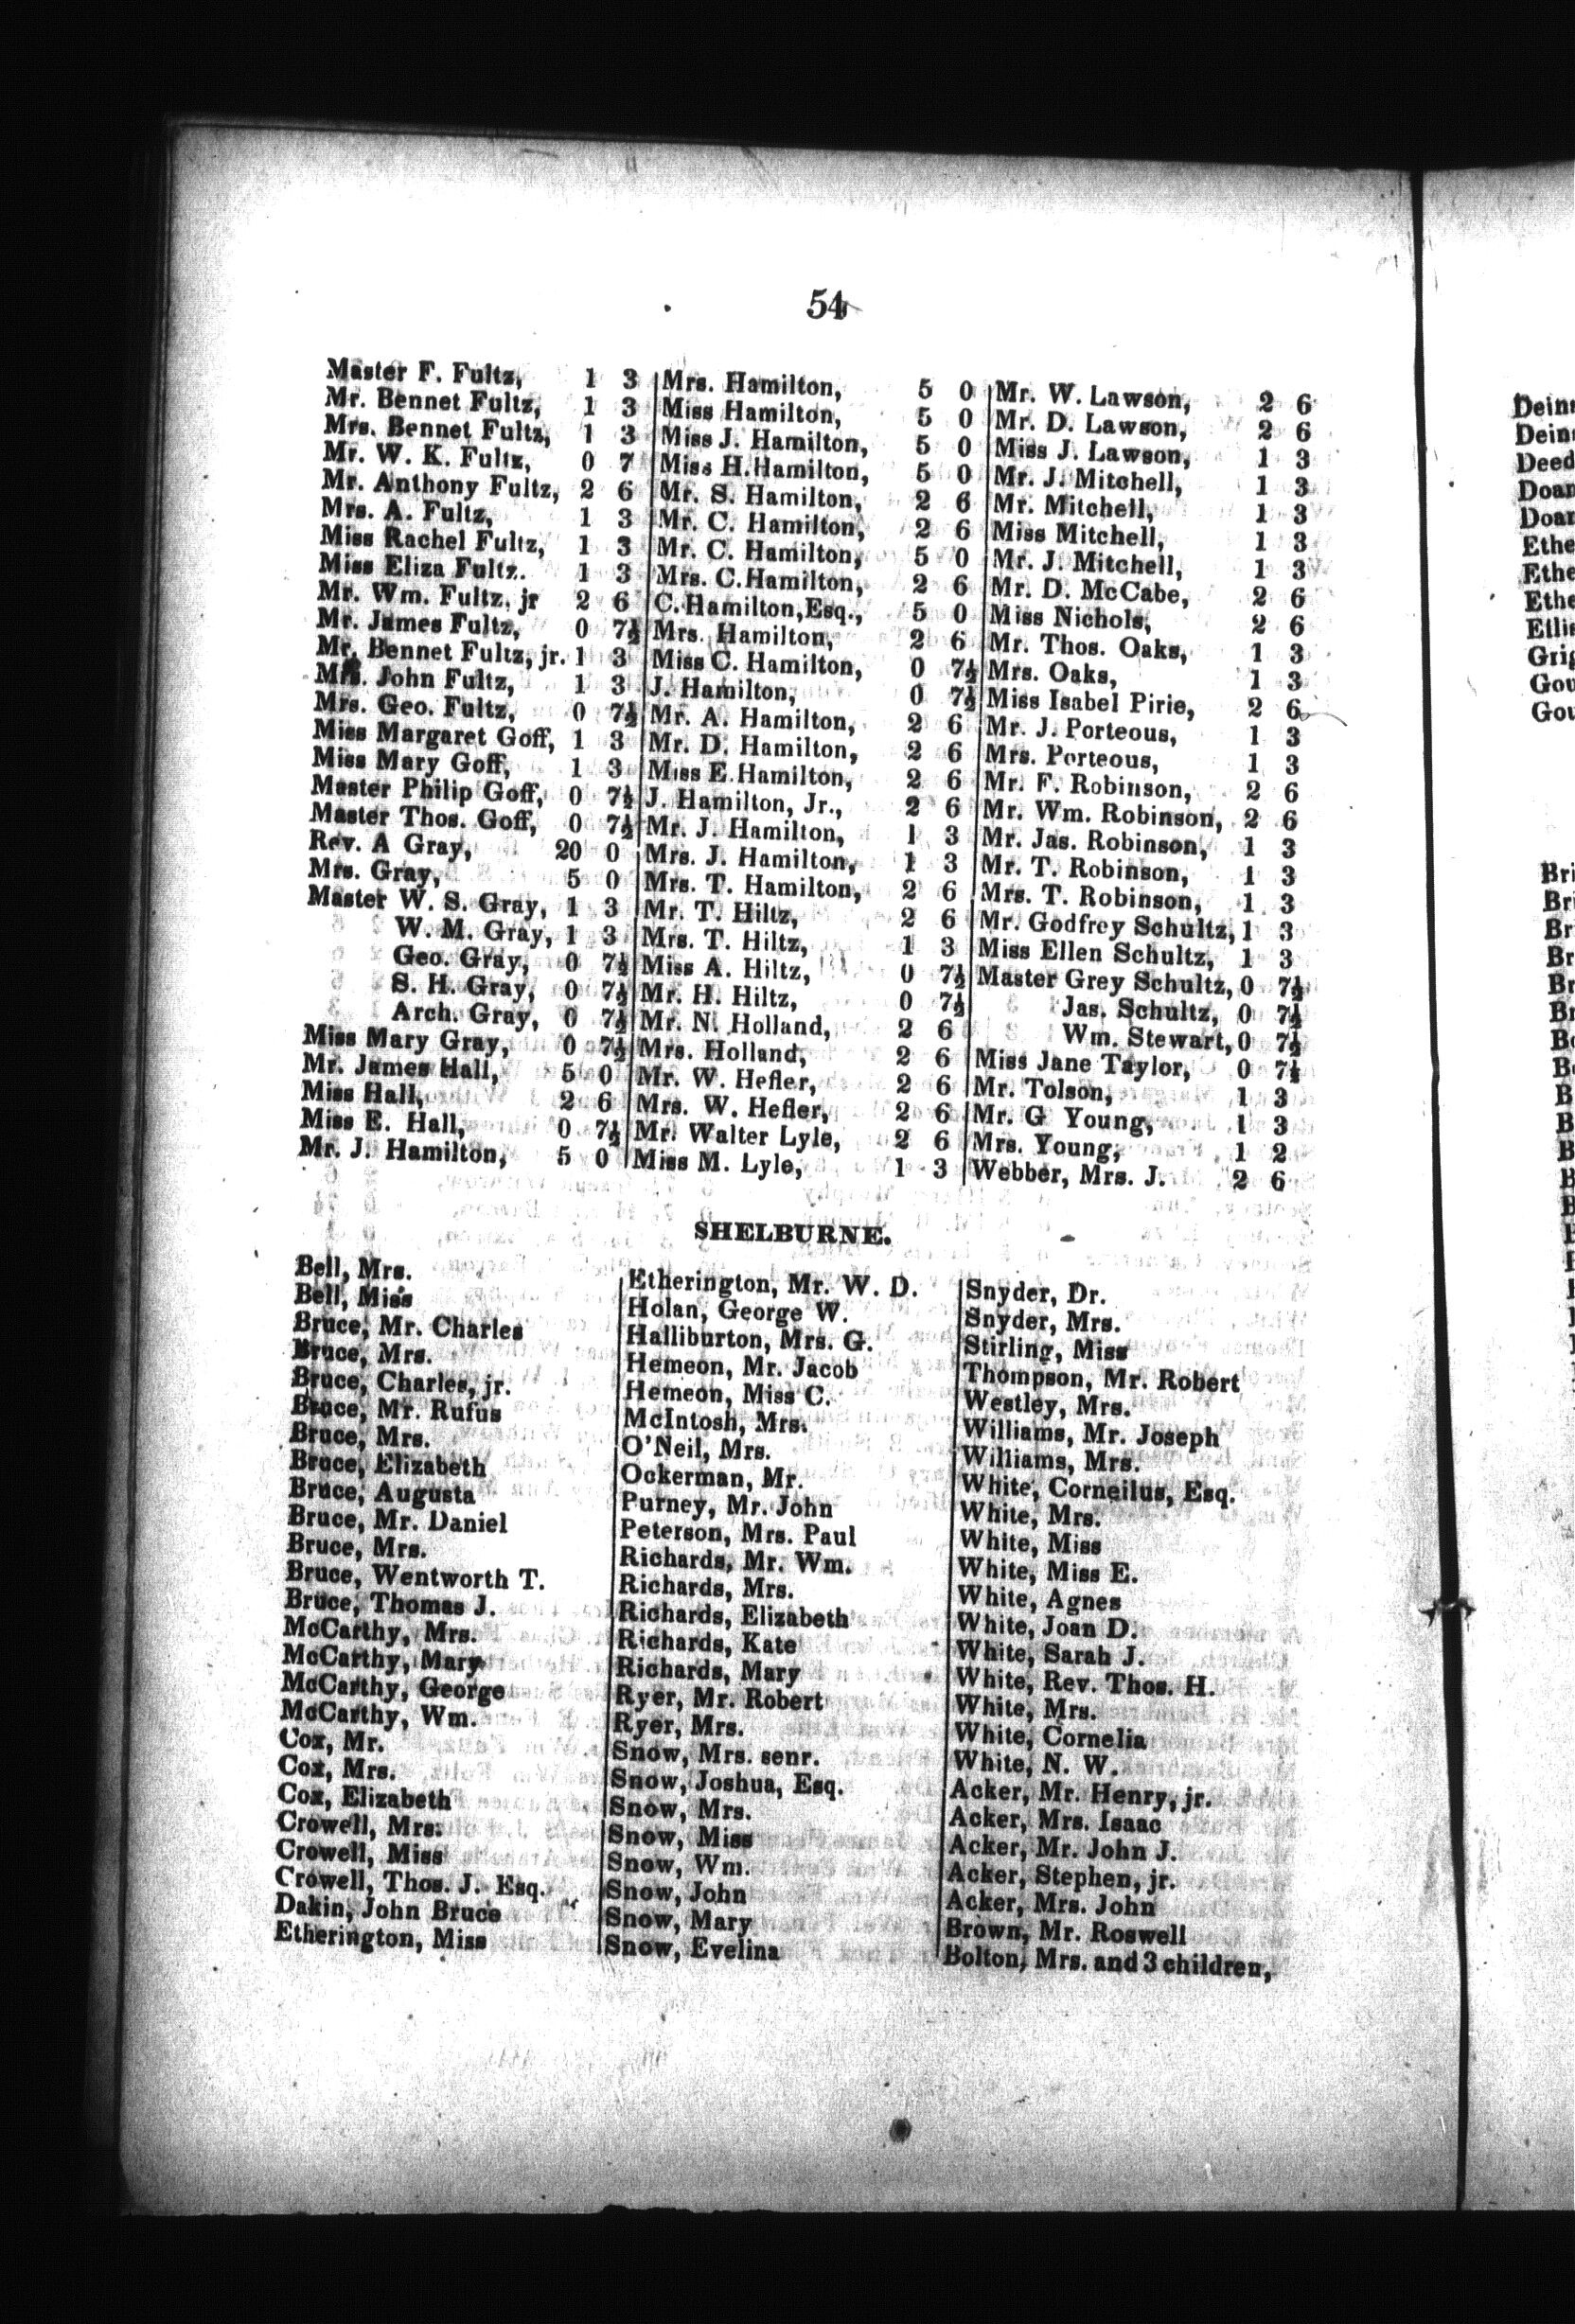 54
Master F. Fultz, 1 3
Mr. Bennet Fultz, 1 3
Mrs. Bennet Fultz, 1 3
Mr. W. K. Fultz, 0 7
Mr. Anthony Fultz, 2 6
Mrs. A. Fultz, 1 3
Miss Rachel Fultz, 1 3
Miss Eliza Fultz. 1 3
Mr. Wm. Fultz, jr 2 6
Mr. James Fultz, 0 7½
Mr. Bennet Fultz, jr. 1 3
Mrs. John Fultz, 1 3
Mrs. Geo. Fultz, 0 7½
Miss Margaret Goff, 1 3
Miss Mary Goff, 1 3
Master Philip Goff, 0 7½
Master Thos. Goff, 0 7½
Rev. A Gray, 20 0
Mrs. Gray, 5 0
Master W. S. Gray, 1 3
W. M. Gray, 1 3
Geo. Gray, 0 7½
S. H. Gray, 0 7½
Arch. Gray, 0 7½
Miss Mary Gray, 0 7½
Mr. James Hall, 5 0
Miss Hall, 2 6
Miss E. Hall, 0 7½
Mr. J. Hamilton, 5 0
Mrs. Hamilton, 5 0
Miss Hamilton, 5 0
Miss J. Hamilton, 5 0
Miss H. Hamilton, 5 0
Mr. S. Hamilton, 2 6
Mr. C. Hamilton, 2 6
Mr. C. Hamilton, 5 0
Mrs. C. Hamilton, 2 6
C. Hamilton, Esq., 5 0
Mrs. Hamilton, 2 6
Miss C. Hamilton, 0 7½
J. Hamilton, 0 7½
Mr. A. Hamilton, 2 6
Mr. D. Hamilton, 2 6
Miss E. Hamilton, 2 6
J. Hamilton, Jr., 2 6
Mr. J. Hamilton, 1 3
Mrs. J. Hamilton, 1 3
Mrs. T. Hamilton, 2 6
Mr. T. Hiltz, 2 6
Mrs. T. Hiltz, 1 3
Miss A. Hiltz, 0 7½
Mr. H. Hiltz, 0 7½
Mr. N. Holland, 2 6
Mrs. Holland, 2 6
Mr. W. Hefler, 2 6
Mrs. W. Hefler, 2 6
Mr. Walter Lyle, 2 6
Miss M. Lyle, 1 3
Mr. W. Lawson, 2 6
Mr. D. Lawson, 2 6
Miss J. Lawson, 1 3
Mr. J. Mitchell, 1 3
Mr. Mitchell, 1 3
Miss Mitchell, 1 3
Mr. J. Mitchell, 1 3
Mr. D. McCabe, 2 6
Miss Nichols, 2 6
Mr. Thos. Oaks, 1 3
Mrs. Oaks, 1 3
Miss Isabel Pirie, 2 6
Mr. J. Porteous, 1 3
Mrs. Porteous, 1 3
Mr. F. Robinson, 2 6
Mr. Wm. Robinson, 2 6
Mr. Jas. Robinson, 1 3
Mr. T. Robinson, 1 3
Mrs. T. Robinson, 1 3
Mr. Godfrey Schultz, 1 3
Miss Ellen Schultz, 1 3
Master Grey Schultz, 0 7½
Jas. Schultz, 0 7½
Wm. Stewart, 0 7½
Miss Jane Taylor, 0 7½
Mr. Tolson, 1 3
Mr. G Young, 1 3
Mrs. Young, 1 2
Webber, Mrs. J. 2 6
SHELBURNE.
Bell, Mrs.
Bell, Miss
Bruce, Mr. Charles
Bruce, Mrs.
Bruce, Charles, jr.
Bruce, Mr. Rufus
Bruce, Mrs.
Bruce, Elizabeth
Bruce, Augusta
Bruce, Mr. Daniel
Bruce, Mrs.
Bruce, Wentworth T.
Bruce, Thomas J.
McCarthy, Mrs.
McCarthy, Mary
McCarthy, George
McCarthy, Wm.
Cox, Mr.
Cox, Mrs.
Cox, Elizabeth
Crowell, Mrs.
Crowell, Miss
Crowell, Thos. J. Esq.
Dakin, John Bruce
Etherington, Miss
Etherington, Mr. W. D.
Holan, George W.
Halliburton, Mrs. G.
Hemeon, Mr. Jacob
Hemeon, Miss C.
McIntosh, Mrs.
O'Neil, Mrs.
Ockerman, Mr.
Purney, Mr. John
Peterson, Mrs. Paul
Richards, Mr. Wm.
Richards, Mrs.
Richards, Elizabeth
Richards, Kate
Richards, Mary
Ryer, Mr. Robert
Ryer, Mrs.
Snow, Mrs. senr.
Snow, Joshua, Esq.
Snow, Mrs.
Snow, Miss
Snow, Wm.
Snow, John
Snow, Mary
Snow, Evelina
Snyder, Dr.
Snyder, Mrs.
Stirling, Miss
Thompson, Mr. Robert
Westley, Mrs.
Williams, Mr. Joseph
Williams, Mrs.
White, Corneilus, Esq.
White, Mrs.
White, Miss
White, Miss E.
White, Agnes
White, Joan D.
White, Sarah J.
White, Rev. Thos. H.
White, Mrs.
White, Cornelia
White, N. W.
Acker, Mr. Henry, jr.
Acker, Mrs. Isaac
Acker, Mr. John J.
Acker, Stephen, jr.
Acker, Mrs. John
Brown, Mr. Roswell
Bolton, Mrs. and 3 children,